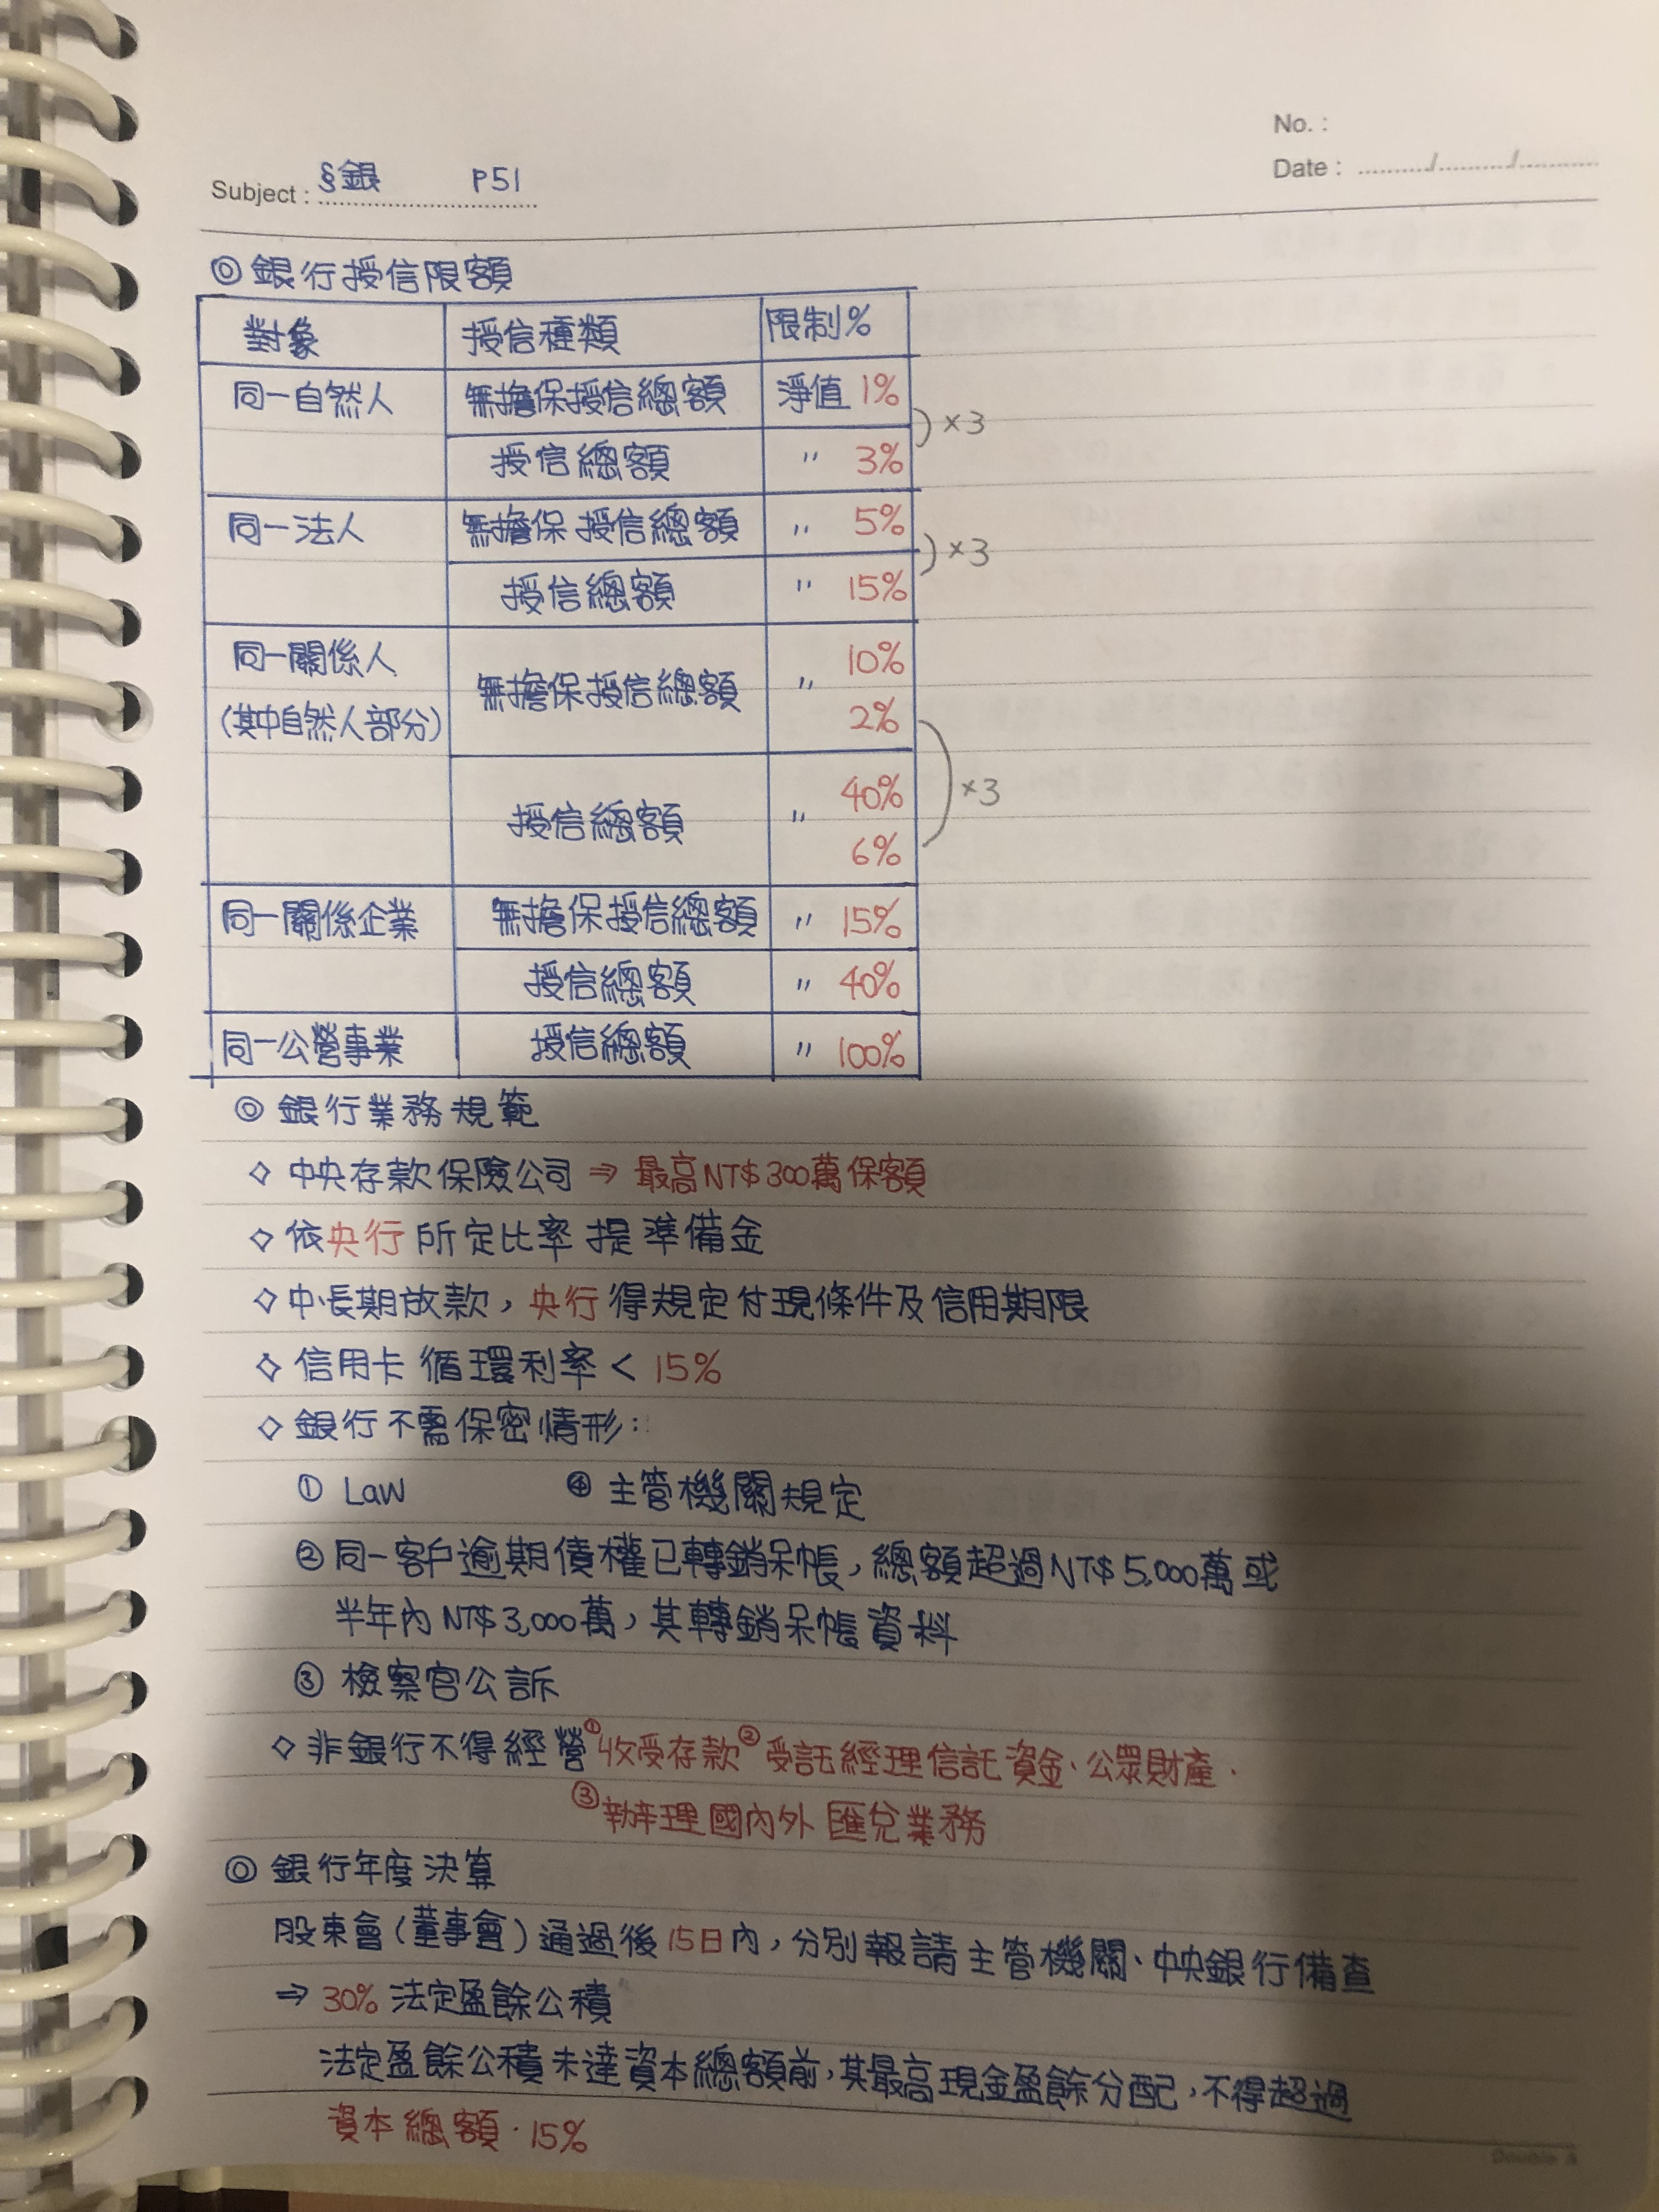 No. :
Subject : §銀 P51
Date : ........./........./.........
◎ 銀行授信限額
對象 授信種類 限制%
同一自然人 無擔保授信總額 淨值 1%
授信總額 〃 3%
)×3
同一法人 無擔保授信總額 〃 5%
授信總額 〃 15%
)×3
同一關係人 無擔保授信總額 〃 10%
(其中自然人部分) 2%
授信總額 〃 40%
6%
)×3
同一關係企業 無擔保授信總額 〃 15%
授信總額 〃 40%
同一公營事業 授信總額 〃 100%
◎ 銀行業務規範
◇ 中央存款保險公司 ⇒ 最高NT$300萬保額
◇ 依央行所定比率提準備金
◇ 中.長期放款，央行得規定付現條件及信用期限
◇ 信用卡循環利率 < 15%
◇ 銀行不需保密情形：
① Law ④ 主管機關規定
② 同一客戶逾期債權已轉銷呆帳，總額超過NT$5,000萬或
半年內NT$3,000萬，其轉銷呆帳資料
③ 檢察官公訴
◇ 非銀行不得經營①收受存款②受託經理信託資金、公眾財產、
③辦理國內外匯兌業務
◎ 銀行年度決算
股東會(董事會)通過後15日內，分別報請主管機關、中央銀行備查
⇒ 30% 法定盈餘公積
法定盈餘公積未達資本總額前，其最高現金盈餘分配，不得超過
資本總額.15%
Double A